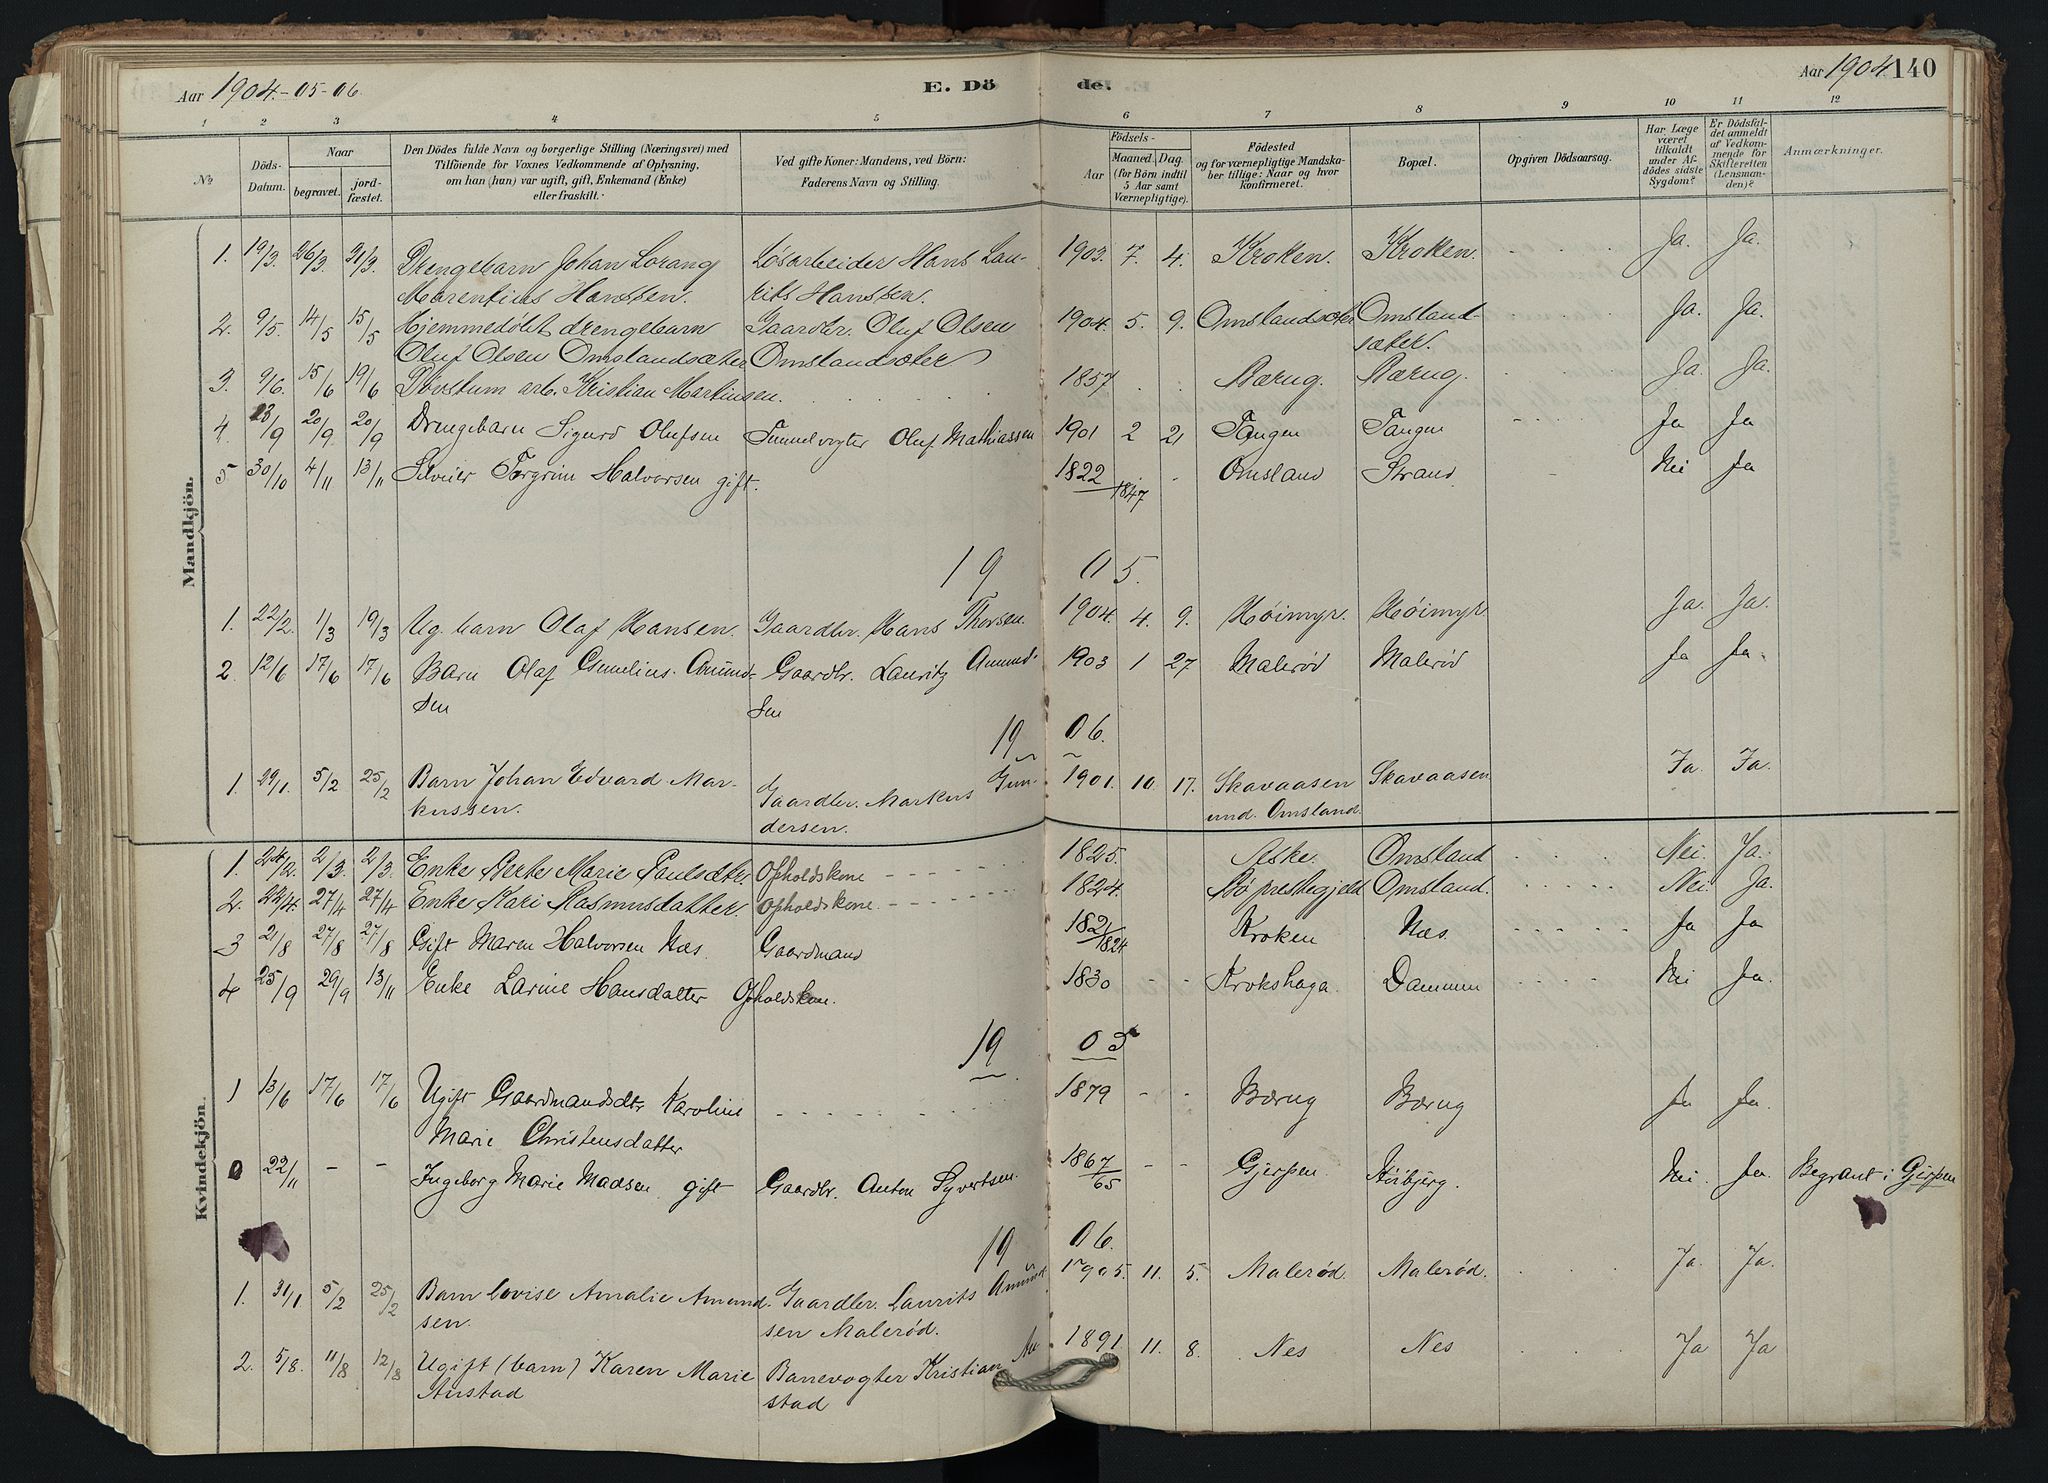 Aar 1904.-05-06. E. Dö de. Aar 1904. 140
1 2 3 4 5 6 7 8 9 10 11 12
No Döds-Datum. Naar begravet. jord-fæstet. Den Dödes fulde Navn og borgerlige Stilling (Næringsvei) med Tilföiende for Voxnes Vedkommende af Oplysning, om han (hun) var ugift, gift, Enkemand (Enke) eller fraskilt. Ved gifte Koner: Mandens, ved Börn: Faderens Navn og Stilling. Födsels- Aar Maaned Dag. (for Börn indtil 5 Aar samt Værnepligtige). Födested og for værnepligtige Mandskaber tillige: Naar og hvor konfirmeret. Bopæl. Opgiven Dödsaarsag. Har Læge været tilkaldt under Afdödes sidste Sygdom? Er Dödsfaldet anmeldt af Vedkommende for Skifteretten (Lensmanden)? Anmærkninger.
Mandkjön.
1. 19/3. 26/3. 31/3. Drengebarn Johan Lorang Løsarbeider Hans Lau- 1903. 7. 4. Kroken. Kroken. Ja. Ja.
Marentius Hanssen. rits Hanssen.
2. 9/5. 14/5 15/5 Hjemmedøbt drengebarn Gaardbr. Oluf Olsen 1904. 5. 9. Omslandsæter Omsland- Ja. Ja.
Oluf Olsen Omslandsæter Omslandsæter sæter.
3. 9/6. 15/6 19/6 Døvstum arb. Kristian Martinsen. 1857 Bærug. Bærug. Ja. Ja.
4. /9 20/9. 20/9 Drengebarn Sigurd Olufsen Tunnelvogter Oluf Mathiassen 1901 2 21 Tangen Tangen Ja Ja
5 30/10 4/11 13/11 Torgrim Halvorsen gift. 1822/1847 Omsland Strand Nei Ja
19 05.
1. 22/2. 1/3 19/3 Ug. barn Olaf Hansen. Gaardbr. Hans Thorsen. 1904. 4. 9. Høimyr. Høimyr. Ja. Ja.
2. 12/6 17/6 17/6 Barn Olaf Cornelius Amund- Gaardbr. Lauritz Amund- 1903 1 27 Malerød Malerød Ja Ja.
sen sen
19 06.
1. 29/1. 5/2 25/2 Barn Johan Edvard Mar- Gaardbr. Markus Gun- 1901. 10. 17. Skavaasen Skavaasen Ja. Ja.
kussen. dersen. und. Omsland.
Kvindekjön.
1. 24/2. 2/3. 2/3. Enke Berte Marie Paulsdtr. Opholdskone 1825. Aske. Omsland Nei. Ja.
2. 22/4. 27/4 27/4 Enke Kari Rasmusdatter. Opholdskone. 1824. Bø prestegjeld Omsland. Nei. Ja.
3 21/8 27/8 27/8 Gift Maren Halvorsen Næs. Gaardmand 1821/1824 Kroken Næs. Ja Ja
4 25/9 29/9 13/11 Enke Larine Hansdatter Opholdskone. 1830 - - Krokshaga. Dammen Nei Ja.
19 05
1 13/6 17/6 17/6 Ugift Gaardmandsdtr Karoline 1879 - - Bærug Bærug Ja Ja.
Marie Christensdatter
0 22/11 - - Ingeborg Marie Madsen gift Gaardbr. Anton Syvertsen. 1867/65 - - Gjerpen. Høibjerg. Nei. Ja. Begravet i Gjerpen
19 06.
1. 31/1 5/2 25/2 Barn Lovise Amalie Amund- Gaardbr. Laurits Amund- 1905. 11. 5. Malerød. Malerød. Ja. Ja.
sen. sen Malerød.
2. 5/8. 11/8 12/8 Ugift (barn) Karen Marie Banevogter Kristian Au- 1891. 11. 8. Nes Nes Ja Ja
Austad stad